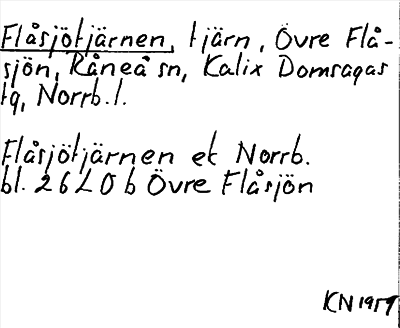 Flåsjötjärnen, tjärn, Övre Flå-
sjön, Råneå sn, Kalix Domsagas
tg, Norrb. l.
Flåsjötjärnen ek Norrb.
bl. 26 L 0 b Övre Flåsjön
KN 1959